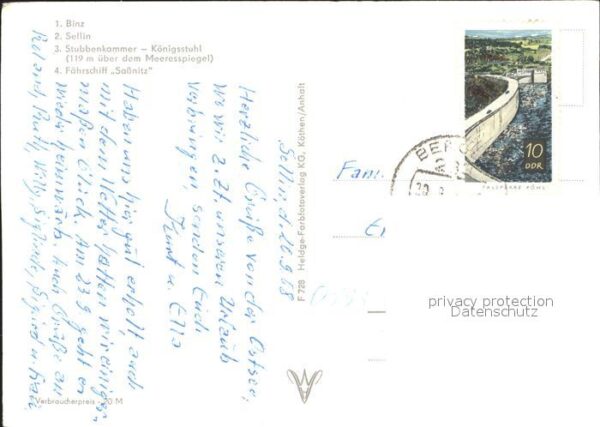 1. Binz
2. Sellin
3. Stubbenkammer – Königsstuhl
(119 m über dem Meeresspiegel)
4. Fährschiff „Saßnitz"
Sellin, d. 20.9.68
Herzliche Grüße von der Ostsee,
wo wir z. Zt. unseren Urlaub
verbringen senden Euch
Kurt u. Ella
Haben uns hier gut erholt, auch
mit dem Wetter hatten wir einiger-
maßen Glück. Am 23.9. geht es
wieder heimwärts. Auch Grüße an
Roland, Willy, Sieglinde, Sigrid u. Frau
Verbraucherpreis -,20 M
F 728 Heldge-Farbfotoverlag KG, Köthen/Anhalt
Fam.
BERG
10
DDR
TALSPERRE PÖHL
privacy protection
Datenschutz